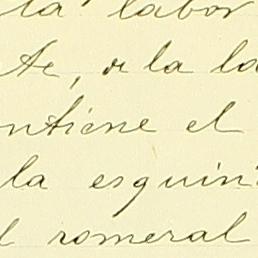 la labor
te, a la la
ntiene el
la esquin
l romeral